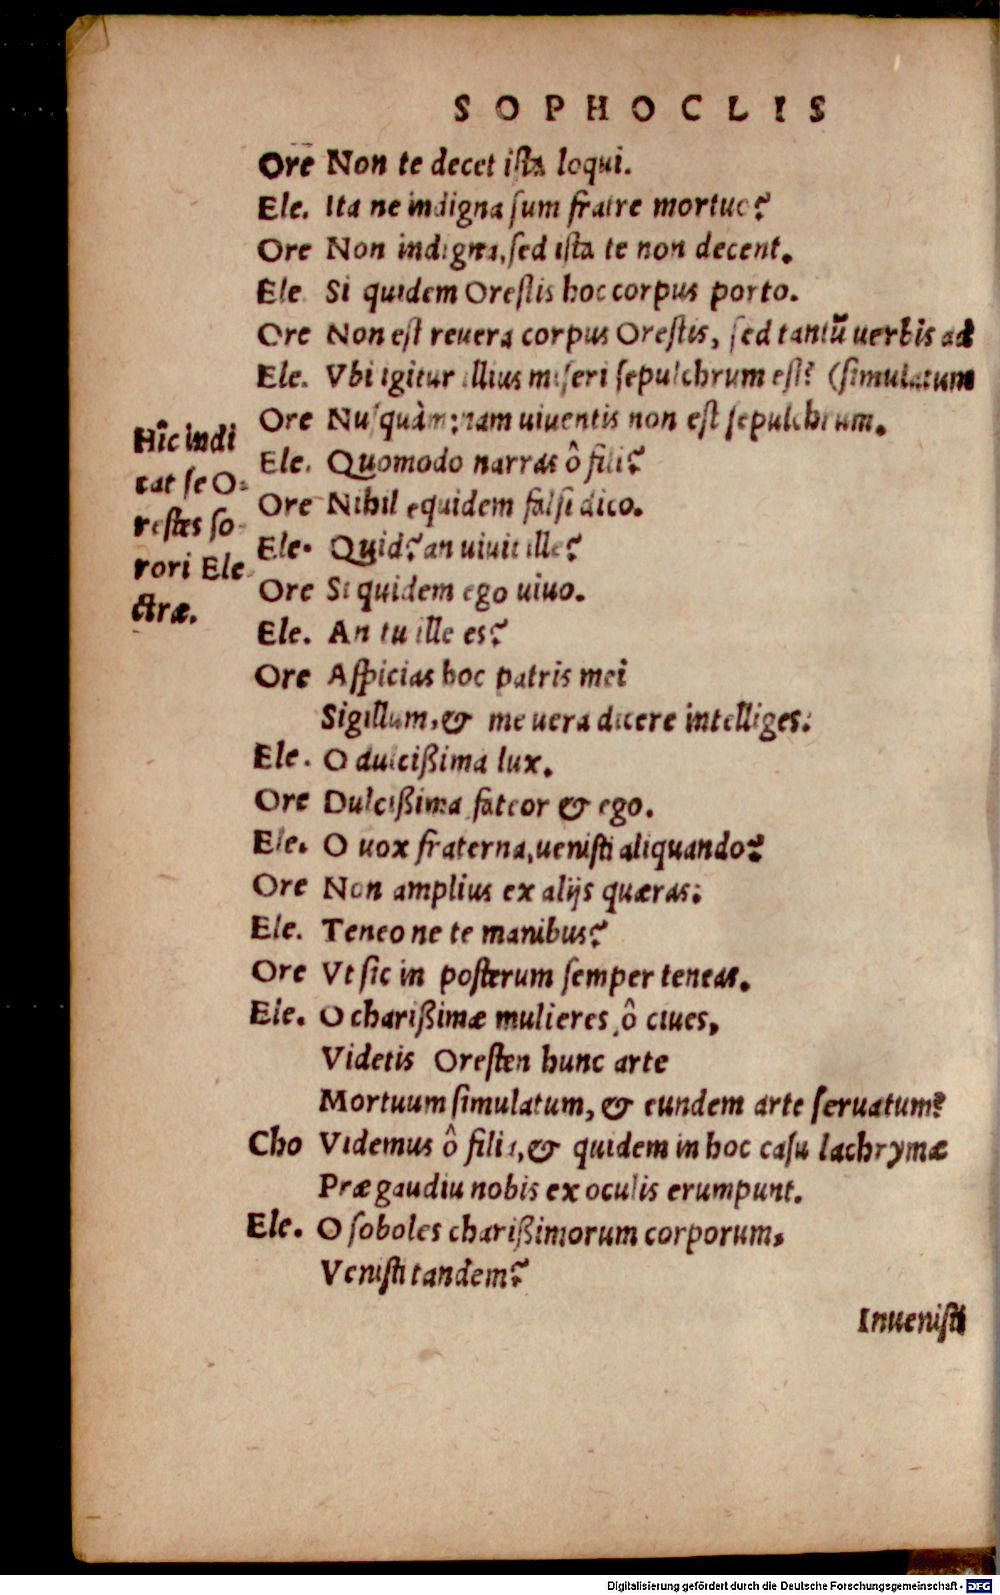 SOPHOCLIS
Ore Non te decet ista loqui.
Ele. Ita ne indigna sum fratre mortuo?
Ore Non indigna, sed ista te non decent.
Ele Si quidem Orestis hoc corpus porto.
Ore Non est reuera corpus Orestis, sed tantũ uerbis ad
Ele. Vbi igitur illius miseri sepulchrum est? (simulatum
Ore Nusquàm: nam uiuentis non est sepulchrum.
Ele. Quomodo narras ô fili?
Ore Nihil equidem falsi dico.
Ele. Quid? an uiuit ille?
Ore Si quidem ego uiuo.
Ele. An tu ille es?
Ore Aspicias hoc patris mei
Sigillum, & me uera dicere intelliges.
Ele. O dulcißima lux.
Ore Dulcißima fateor & ego.
Ele. O uox fraterna, uenisti aliquando?
Ore Non amplius ex alijs quæras.
Ele. Teneo ne te manibus?
Ore Vt sic in posterum semper teneas.
Ele. O charißimæ mulieres, ô ciues,
Videtis Oresten hunc arte
Mortuum simulatum, & eundem arte seruatum?
Cho Videmus ô filia, & quidem in hoc casu lachrymæ
Præ gaudiu nobis ex oculis erumpunt.
Ele. O soboles charißimorum corporum,
Venisti tandem?
Inuenisti
Hîc indi
cat se O-
restes so-
rori Ele-
ctræ.
Digitalisierung gefördert durch die Deutsche Forschungsgemeinschaft - DFG